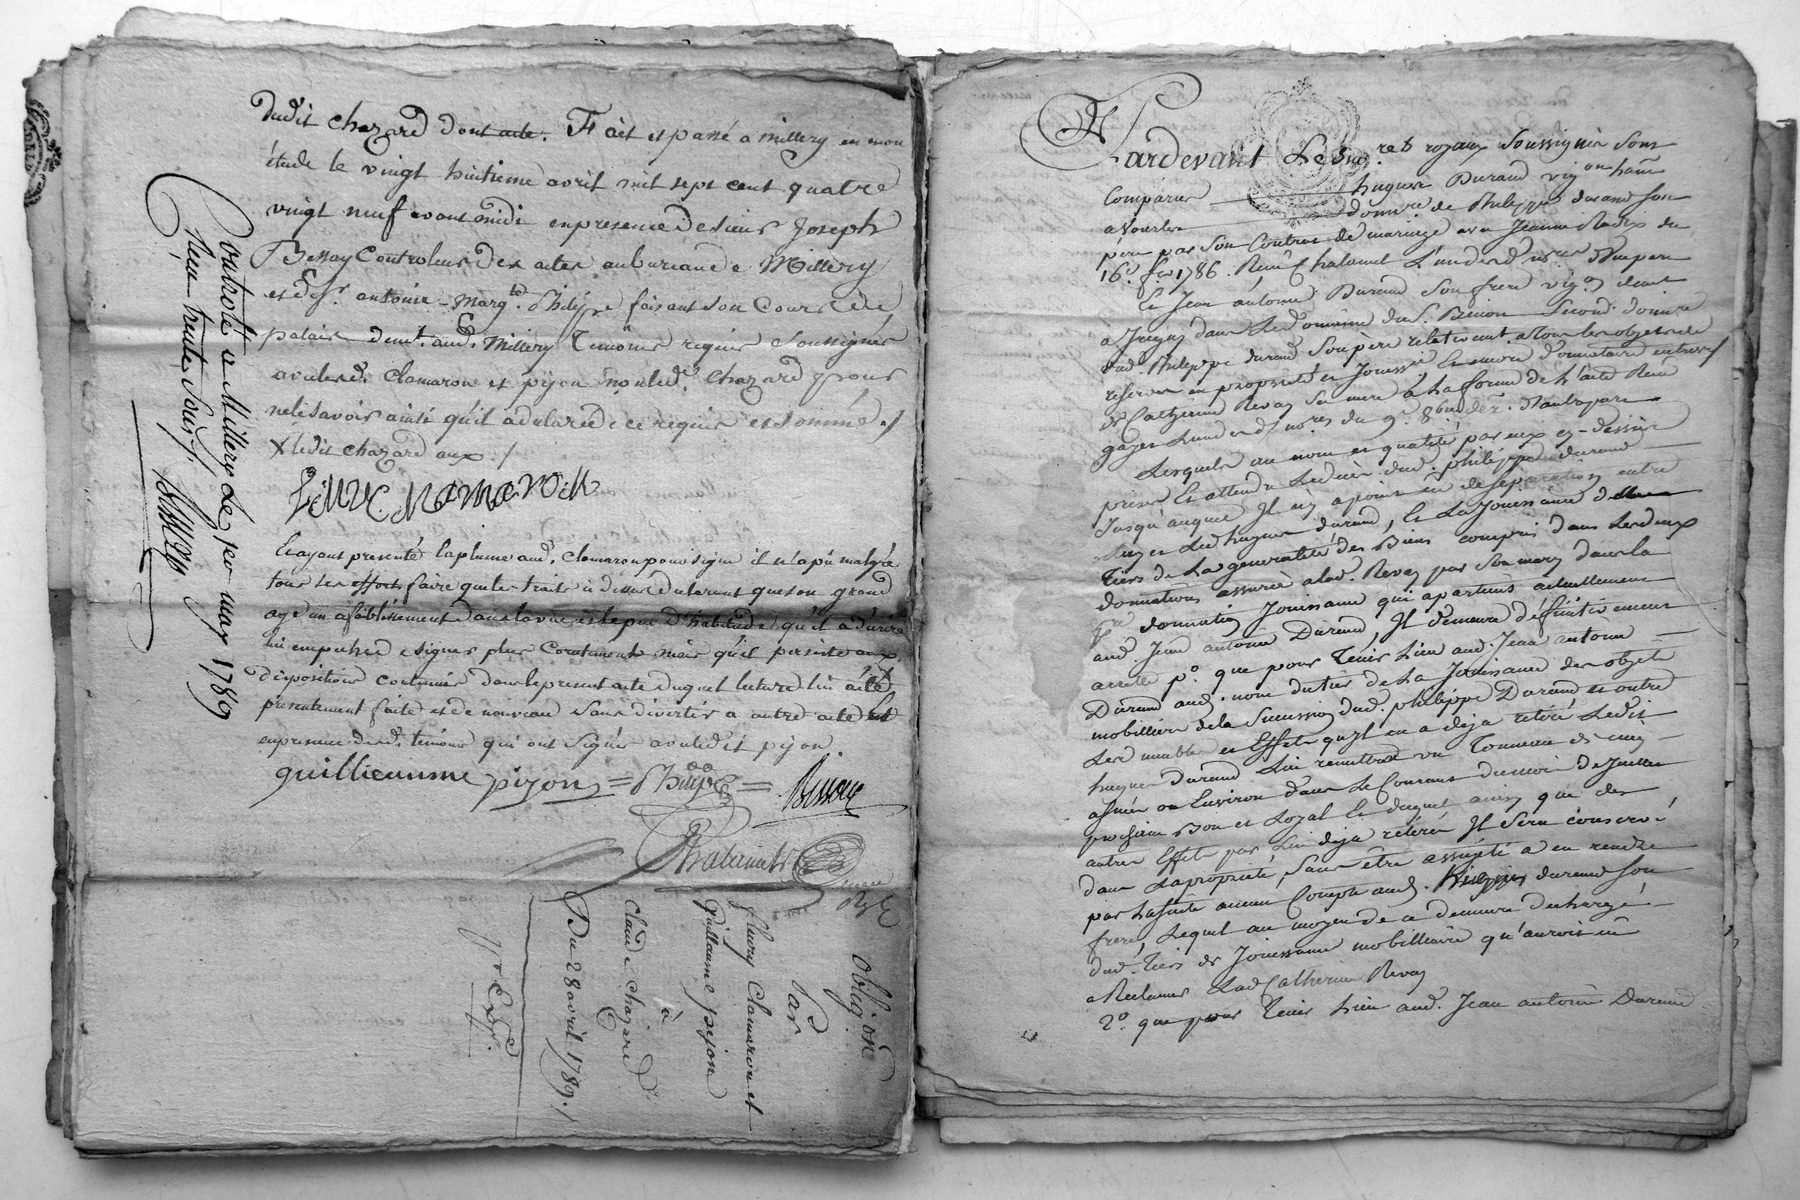 dudit chazard dont acte. Fait et passé a millery en mon
étude le vingt huitieme avril mil sept cent quatre
vingt neuf avant midi en presence de sieur Joseph
Bessay Controleur des actes au bureau de Millery
et de sr. antoine-marg. Philippe faisant son Cours de
palais demt. aud. Millery Temoins requis Soussignés
avec led. clamaron et pijon non led. chazard pour
ne le savoir ainsi qu'il a declaré de ce requis et sommé ./
X ledit chazard aux ./
Et ayant presenté la plume aud. clamaron pour signer il n'a pu malgré
tous ses efforts faire que les traits ci dessus declarant que son grand
age un affoiblissement dans la vue et le peu d'habitude qu'il a d'écrire
lui empechee signer plus Correctement mais qu'il persiste aux
dispositions contenues dans le present acte duquel lecture lui a été
presentement faite et de nouveau sans divertir a autre acte
en presence desd. temoins qui ont signés avec ledit pijon.
guilleaumme pizon = Philippe = Bessay
Chalamel
Controlé a Millery Le 1er may 1789
Reçu trente Sous ./.
Bessay
oblig.on
Par
fleury Clamaron et
Guillaume pijon
à
Claude chazard
Du 28 avril 1789 ./
Pardevant Les no.res royaux Soussignés Sont
Comparus hugues Durand vig.on hant
a Vourles donre. de Philippe durand son
père par son Contrat de mariage avec Jeanne du
16e. fer 1786. Reçu Chalamel L'un desd. nores D'une part
Et Jean antoine Durand Son frere vig.on demt
a Irigny dans le domaine du s. Second donre
dud. Philippe durand Son père relativement a tous les objets
reservés en propriété et Jouissance Et encore donnataire
de Catherine Revay Sa mere à la forme de l'acte Reçu
L'un desd. nores du 9e. 8bre der. D'autre part
Lesquels au nom et qualités par eux cy-dessus
prises Et attendu Le deces dud. philippe durand
Jusqu'auquel Il n'y a point eu de separation entre
Luy et led. hugues durand, Et La Jouissance
tiers de La generalité des Biens compris dans Lesdeux
donnations assurée a lad. Revay par Son mary dans la
donnation Jouissance qui apartient actuellement
aud. Jean antoine Durand, Il demeure définitivement
arreté 1o. que pour Tenir Lieu aud. Jean antoine
Durand aud. nom du tiers de La Jouissance des objets
mobilliers de la Succession dud. philippe Durand et outre
Les meubles et Effets qu'il en a deja retiré Ledit
hugues durand Lui remettra un Tonneau de cinq
asnées ou Environ dans Le Courant du mois de Juillet
prochain Bon et Loyal Et duquel ainsy que des
autres Effets par Lui deja retirés Il Sera conservé
dans La proprieté, Sans être assujeti a en rendre
par La suite aucun Compte aud. hugues durand Son
frere, Lequel au moyen de ce demeure dechargé
dud. tiers de Jouissance mobilliaire qu'auroit eu
a Reclamer Lad. Catherine Revay
2o. que pour Tenir Lieu aud. Jean antoine Durand